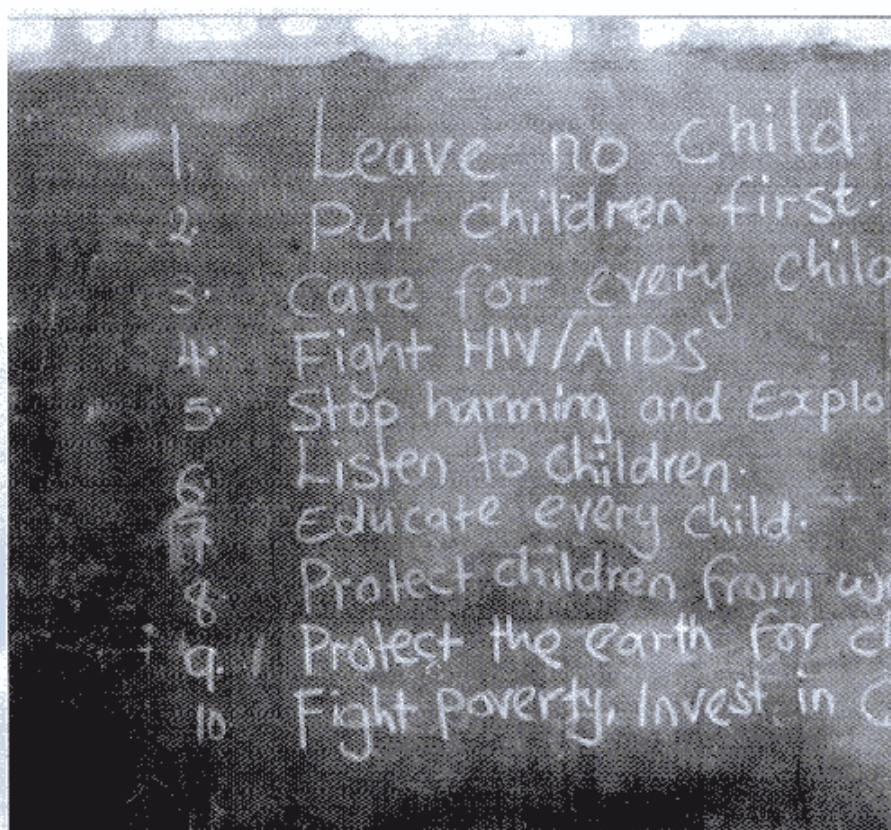 1. Leave no child
2. Put children first.
3. Care for every child
4. Fight HIV/AIDS
5. Stop harming and Explo
6. Listen to children.
7 Educate every child.
8. Protect children from w
9. Protect the earth for ch
10 Fight poverty, Invest in C